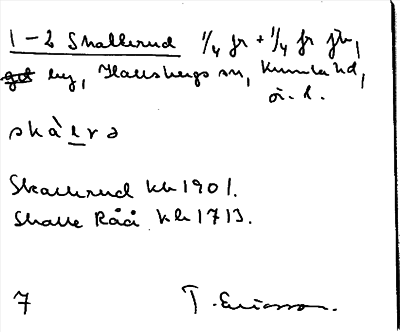 1-2 Skallerud 1/4 fr + 1/4 fr fr,
by, Hallsbergs sn, Kumla hd,
ö. l.
skàlra
Skallerud kb 1901.
Skalle Råå kb 1713.
7 T. Ericsson.